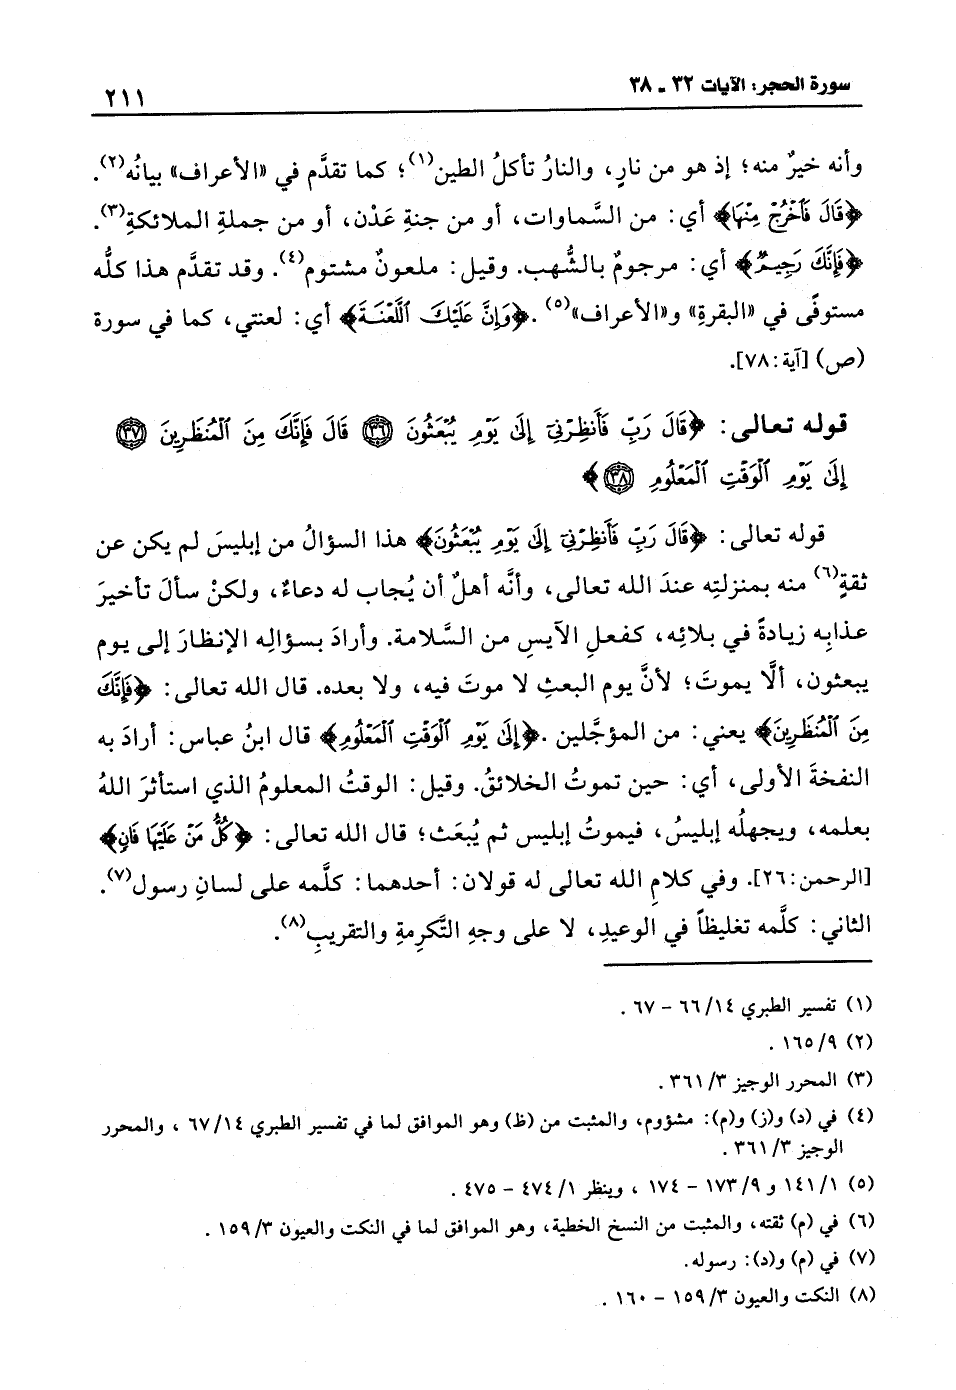 سورة الحجر: الآيات ٣٢ - ٣٨
٢١١
وأنه خيرٌ منه؛ إذ هو من نارٍ، والنارُ تأكلُ الطين(١)؛ كما تقدَّم في «الأعراف» بيانُه(٢).
﴿قَالَ فَٱخْرُجْ مِنْهَا﴾ أي: من السَّماوات، أو من جنةِ عَدْن، أو من جملةِ الملائكةِ(٣).
﴿فَإِنَّكَ رَجِيمٌ﴾ أي: مرجومٌ بالشُّهب. وقيل: ملعونٌ مشتوم(٤). وقد تقدَّم هذا كلُّه
مستوفًى في «البقرةِ» و«الأعراف»(٥). ﴿وَإِنَّ عَلَيْكَ ٱللَّعْنَةَ﴾ أي: لعنتي، كما في سورة
(ص) [آية: ٧٨].
قوله تعالى: ﴿قَالَ رَبِّ فَأَنظِرْنِىٓ إِلَىٰ يَوْمِ يُبْعَثُونَ ٣٦ قَالَ فَإِنَّكَ مِنَ ٱلْمُنظَرِينَ ٣٧
إِلَىٰ يَوْمِ ٱلْوَقْتِ ٱلْمَعْلُومِ ٣٨﴾
قوله تعالى: ﴿قَالَ رَبِّ فَأَنظِرْنِىٓ إِلَىٰ يَوْمِ يُبْعَثُونَ﴾ هذا السؤالُ من إبليسَ لم يكن عن
ثقةٍ(٦) منه بمنزلتِه عندَ الله تعالى، وأنَّه أهلٌ أن يُجاب له دعاءٌ، ولكنْ سألَ تأخيرَ
عذابِه زيادةً في بلائِه، كفعلِ الآيسِ من السَّلامة. وأرادَ بسؤالِه الإنظارَ إلى يوم
يبعثون، ألَّا يموتَ؛ لأنَّ يوم البعثِ لا موتَ فيه، ولا بعده. قال الله تعالى: ﴿فَإِنَّكَ
مِنَ ٱلْمُنظَرِينَ﴾ يعني: من المؤجَّلين. ﴿إِلَىٰ يَوْمِ ٱلْوَقْتِ ٱلْمَعْلُومِ﴾ قال ابنُ عباس: أرادَ به
النفخةَ الأولى، أي: حين تموتُ الخلائقُ. وقيل: الوقتُ المعلومُ الذي استأثرَ اللهُ
بعلمه، ويجهلُه إبليسُ، فيموتُ إبليس ثم يُبعَث؛ قال الله تعالى: ﴿كُلُّ مَنْ عَلَيْهَا فَانٍ﴾
[الرحمن: ٢٦]. وفي كلامِ الله تعالى له قولان: أحدهما: كلَّمه على لسانِ رسول(٧).
الثاني: كلَّمه تغليظاً في الوعيدِ، لا على وجهِ التَّكرِمةِ والتقريبِ(٨).
(١) تفسير الطبري ١٤/ ٦٦ - ٦٧ .
(٢) ٩/ ١٦٥ .
(٣) المحرر الوجيز ٣/ ٣٦١ .
(٤) في (د) و(ز) و(م): مشؤوم، والمثبت من (ظ) وهو الموافق لما في تفسير الطبري ١٤/ ٦٧ ، والمحرر
الوجيز ٣/ ٣٦١ .
(٥) ١/ ١٤١ و ٩/ ١٧٣ - ١٧٤ ، وينظر ١/ ٤٧٤ - ٤٧٥ .
(٦) في (م) ثقته، والمثبت من النسخ الخطية، وهو الموافق لما في النكت والعيون ٣/ ١٥٩ .
(٧) في (م) و(د): رسوله.
(٨) النكت والعيون ٣/ ١٥٩ - ١٦٠ .